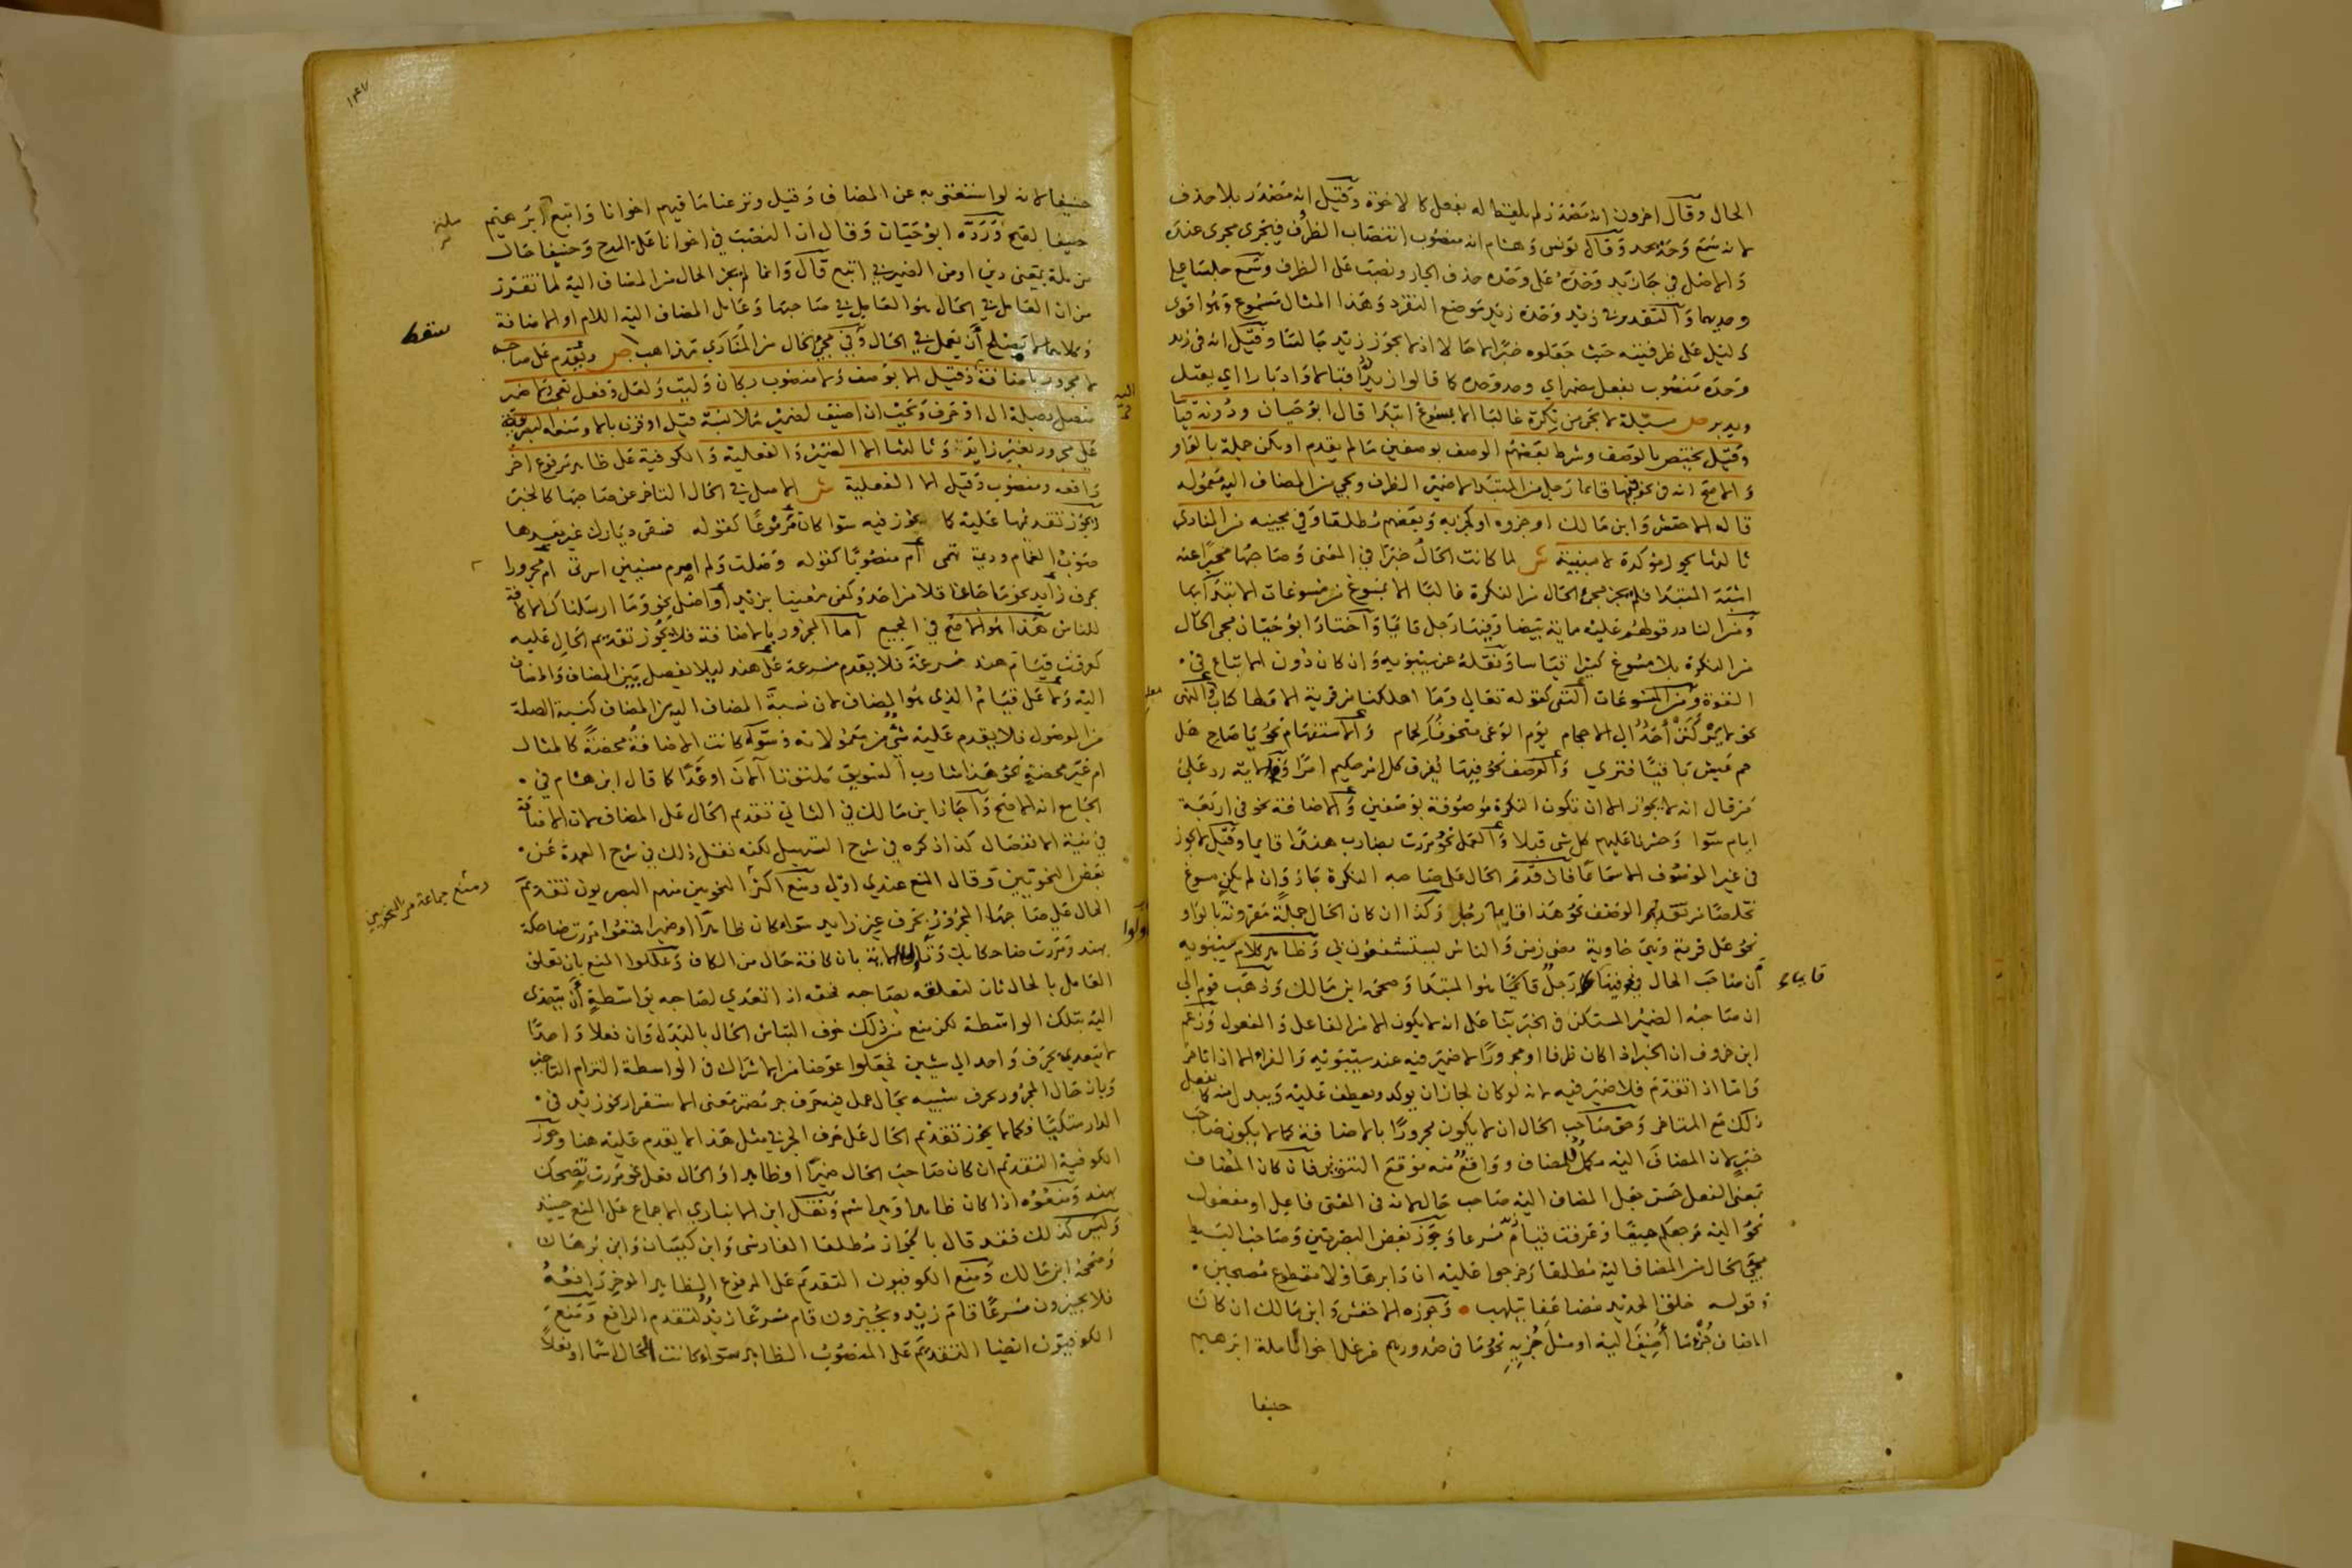 الحال وقال اخرون انه مصدر لم يلفظ له بفعل كالاخوة وقيل انه مصدر بلا حذف
لانه سمع وحد يحد وقال يونس وهشام انه منصوب انتصاب الظرف فيجرى مجرى عنده
والاصل في جا زيد وحده على وحده حذف الجار ونصب على الظرف وسمع جلسا على
وحديهما والتقدير في زيد وحده زيد موضع التفرد وهذا المثال مسموع وهو اقوى
دليل على ظرفيته حيث جعلوه خبرا لا حالا اذ لا يجوز زيد جالسا وقيل انه في زيد
وحده منصوب بفعل مضمر اي وحد وحده كما قالوا زيد اقبالا وادبارا اي يقبل
ويدبر ص مسئلة لا تجي من نكرة غالبا الا بمسوغ ابتدا قال ابو حيان ودونه قياسا
وقيل يختص بالوصف وشرط بعضهم الوصف بوصفين ما لم يقدم او يكن جملة بالواو
والاصح انه في نحو فيها قائما رجل من المبتدا لا ضمير الظرف وتجي من المضاف اليه معموله
قاله الاخفش وابن مالك او جزوه او كجزيه وبعضهم مطلقا وفي مجيئه من المنادى
ثالثها يجوز مؤكدة لا مبينة ش لما كانت الحال خبرا في المعنى وصاحبها مخبرا عنه
اشبه المبتدا فلم يجز مجي الحال من النكرة غالبا الا بمسوغ من مسوغات الابتدا بها
ومن النادر قولهم عليه ماية بيضا وفيها رجل قائما واختار ابو حيان مجي الحال
من النكرة بلا مسوغ كثيرا قياسا ونقله عن سيبويه وان كان دون الاتباع في
القوة ومن المسوغات النفي كقوله تعالى وما اهلكنا من قرية الا ولها كتاب والنهي
نحو لا يركنن احد الى الاحجام يوم الوغى متخوفا لحمام والاستفهام نحو يا صاح هل
حم عيش باقيا فترى والوصف نحو فيها يفرق كل امر حكيم امرا رد على
من قال انه لا يجوز الا ان تكون النكرة موصوفة بوصفين والاضافة نحو في اربعة
ايام سوا وحشرنا عليهم كل شى قبلا والعمل نحو مررت بضارب هندا قايما وقيل لا يجوز
في غير الموصوف الا سماعا فان قدم الحال على صاحبه النكرة جاز وان لم يكن مسوغ
تخلصا من تقديم الوصف نحو هذا قايما رجل وكذا ان كان الحال جملة مقرونة بالواو
نحو على قرية وهي خاوية مضى زمن والناس يستشفعون بي وظاهر كلام سيبويه
ان صاحب الحال في نحو فيها قائما رجل هو المبتدا وصححه ابن مالك وذهب قوم الى
قايما
ان صاحبه الضمير المستكن في الخبر بنا على انه لا يكون الا من الفاعل والمفعول وزعم
ابن خروف ان الخبر اذا كان ظرفا او مجرورا لا ضمير فيه عند سيبويه والفراء الا اذا تاخر
واما اذا تقدم فلا ضمير فيه لانه لو كان لجاز ان يوكد ويعطف عليه ويبدل منه كما يفعل
ذلك مع المتاخر وحق صاحب الحال ان لا يكون مجرورا بالاضافة كما لا يكون صاحب
خبر لان المضاف اليه مكمل للمضاف وواقع منه موقع التنوين فان كان المضاف
بمعنى الفعل حسن جعل المضاف اليه صاحب حال لانه في المعنى فاعل او مفعول
نحو اليه مرجعكم جميعا وعرفت قيام زيد مسرعا وجوز بعض البصريين وصاحب البسيط
مجي الحال من المضاف اليه مطلقا وخرجوا عليه ان دابر هاولا مقطوع مصبحين
وقوله حلق الحديد مضاعفا يتلهب وجوزه الاخفش وابن مالك ان كان
المضاف جزء ما اضيف اليه او مثل جزيه نحو ما في صدورهم من غل اخوانا ملة ابرهيم
حنيفا
١٤٧
حنيفا لانه لو استغنى به عن المضاف وقيل ونزعنا ما فيهم اخوانا واتبع ابرهيم
حنيفا لصح ورده ابو حيان وقال ان النصب في اخوانا على المدح وحنيفا حال
من ملة بمعنى دين او من الضمير في اتبع قال وانما لم يجز الحال من المضاف اليه لما تقرر
من ان العامل في الحال هو العامل في صاحبها وعامل المضاف اليه اللام او الاضافة
وكلاهما لا يصلح ان يعمل في الحال وفي مجي الحال من المنادى مذاهب ص ويقدم على صاحبه
لا مجرور باضافة وقيل الا بوصف ولا منصوب بكان وليت ولعل وفعل تعجب ولا ضمير
متصل بصلة ال او حرف ويجب ان اضيف لضمير ملابسه قيل او قرن بالا ومنعه البصرية
على مجرور بغير زايد وثالثها الا الضمير والفعلية والكوفية على ظاهر مرفوع اخر
رافعه ومنصوب وقيل الا الفعلية ش الاصل في الحال التاخر عن صاحبها كالخبر
ويجوز تقديمها عليه كما يجوز فيه سوا كان مرفوعا كقوله فسقى ديارك غير مفسدها
صوب الغمام وديمة تهمى ام منصوبا كقوله وصلت ولم اصرم ام مجرورا
بحرف زايد نحو ما جا عاقلا من احد وكفى معينا بزيد او اصلي نحو وما ارسلناك الا كافة
للناس هذا هو الاصح في الجميع اما المجرور بالاضافة فلا يجوز تقديم الحال عليه
كعرفت قيام هند مسرعة فلا يقدم مسرعة على هند ليلا يفصل بين المضاف والمضاف
اليه ولا على قيام الذي هو المضاف لان نسبة المضاف اليه من المضاف كنسبة الصلة
من الموصول فلا يقدم عليه شي من معمولاته وسواء كانت الاضافة محضة كالمثال
ام غير محضة نحو هذا شارب السويق ملتوتا الان او غدا كما قال ابن هشام في
الجامع انه الاصح واجاز ابن مالك في الثاني تقديم الحال على المضاف لان الاضافة
في نية الانفصال كذا ذكره في شرح التسهيل لكنه نقل ذلك في شرح العمدة عن
بعض النحويين وقال المنع عندي اولى ومنع اكثر النحويين منهم البصريون تقديم
ومنع جماعة من النحويين
الحال على صاحبها المجرور بحرف غير زايد سواء كان ظاهرا او ضميرا فمنعوا مررت ضاحكة
بهند ومررت ضاحكا بك الاية بان كافة حال من الكاف وعللوا المنع بان تعلق
العامل بالحال ثان لتعلقه بصاحبه فحقه اذا تعدى لصاحبه بواسطة ان يتعدى
اليه بتلك الواسطة لكن منع من ذلك خوف التباس الحال بالبدل وان فعلا واحدا
لا يتعدى بحرف واحد الى شيين فجعلوا عوضا من الاشتراك في الواسطة التزام التاخير
وبان حال المجرور بحرف شبيه بحال عمل فيه حرف جر مضمن معنى الاستقرار نحو زيد في
الدار متكيا فكما لا يجوز تقديم الحال على حرف الجر في مثل هذا لا يقدم عليه هنا وجوز
الكوفية التقديم ان كان صاحب الحال ضميرا او ظاهرا والحال فعل نحو مررت تضحك
بهند ومنعوه اذا كان ظاهرا وهي اسم ونقل ابن الانباري الاجماع على المنع حينيذ
وليس كذلك فقد قال بالجواز مطلقا الفارسي وابن كيسان وابن برهان
وصححه ابن مالك ومنع الكوفيون التقديم على المرفوع الظاهر الموخر رافعه
فلا يجيزون مسرعا قام زيد ويجيزون قام مسرعا زيد لتقدم الرافع ومنع
الكوفيون ايضا التقديم على المنصوب الظاهر سواء كانت الحال اسما او فعلا